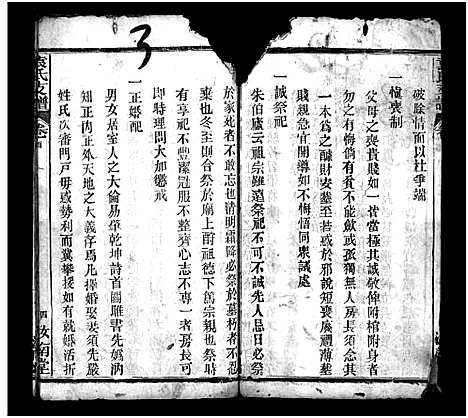 破除情而以杜爭端
一慎喪制
父母之喪貴賤如一皆當極其誠敬俾附棺附身者
勿之有悔倘有貧不能殮或孤獨無人房長須念
一本為之釀財安塟至若惑於邪說短喪廣禮薄塟
賤親急宜開導如不悔悟同衆議處
一誠祭祀
朱伯廬云祖宗雖遠祭祀不可不誠先人忌日必祭
於家死者不敢忘也清明霜降必祭於墓朽者不忍
棄也冬至則合祭於廟上酧祖德下篤宗親也祭時
有享祀不豐潔冠服不整齊心志不專一者房長可
即時理問大加懲戒
一正婚配
男女居室人之大倫易肇乾坤詩首關雎書先媯汭
知正內正外天地之大義存焉凡擇婚娶妻須先嚴
姓氏次審門戸毋惑勢利而冀攀援如
袁氏支譜
卷
四
汝南堂
3